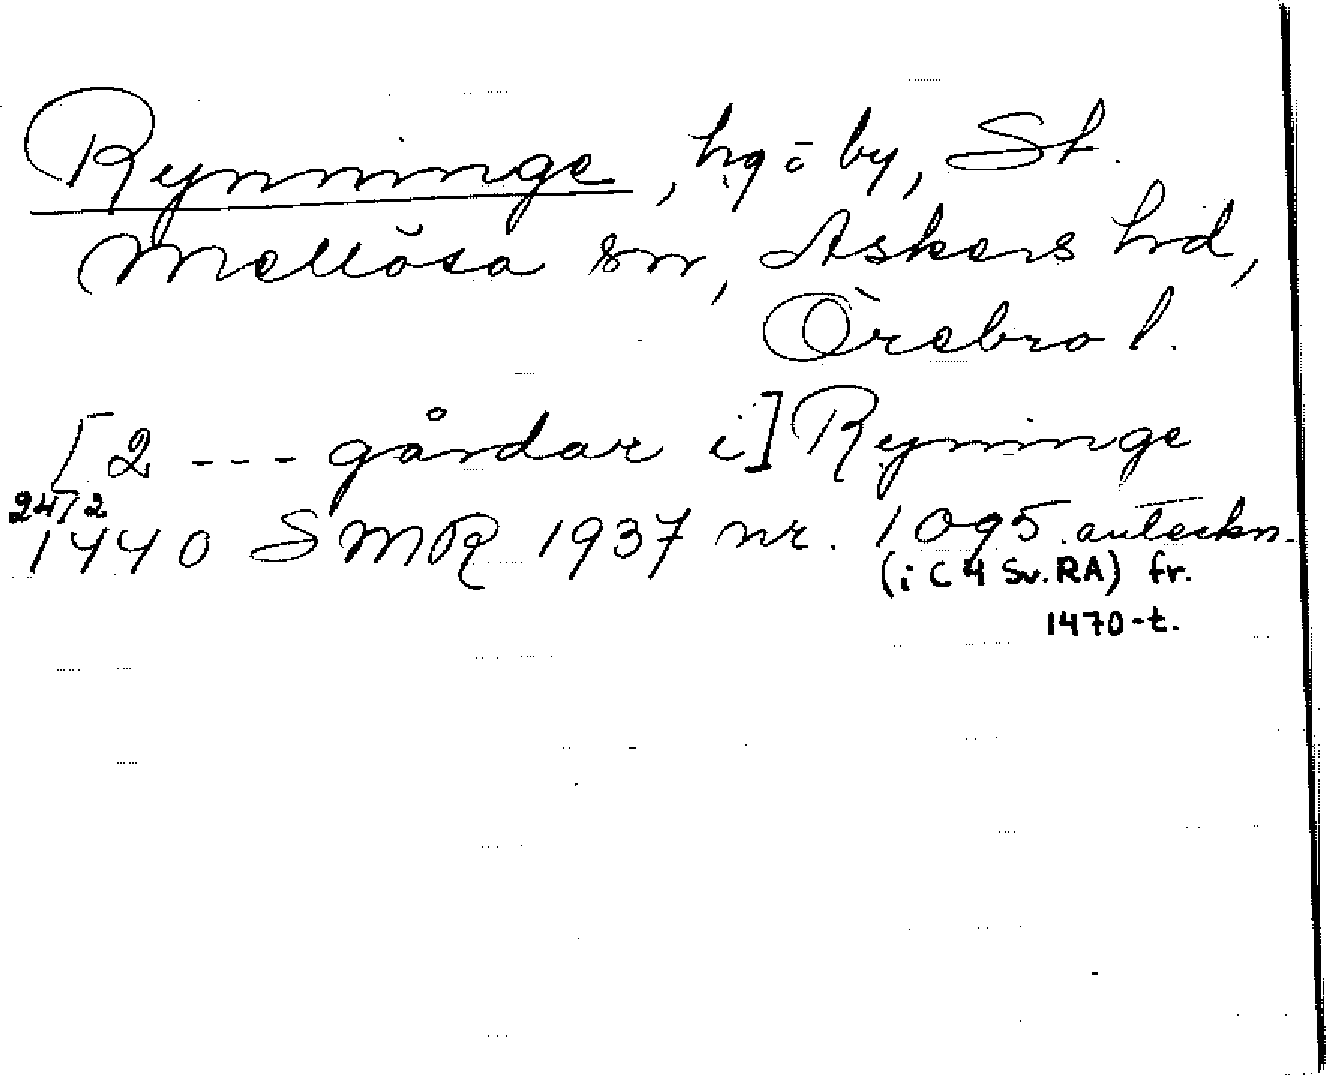 Rynninge, hg o by, St.
Mellösa sn, Askers hrd,
Örebro l.
[2 --- gårdar i] Ryninge
24/2
1440 SMR 1937 nr. 1095. anteckn.
(i C 4 Sv. RA) fr.
1470-t.